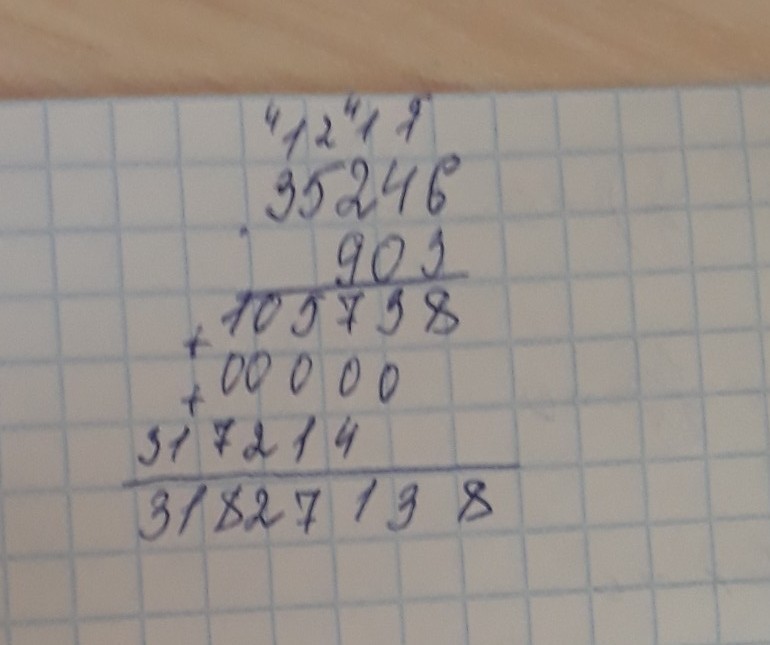 4 1 2 4 1 1
35246
903
105738
+
00000
+
317214
31827138